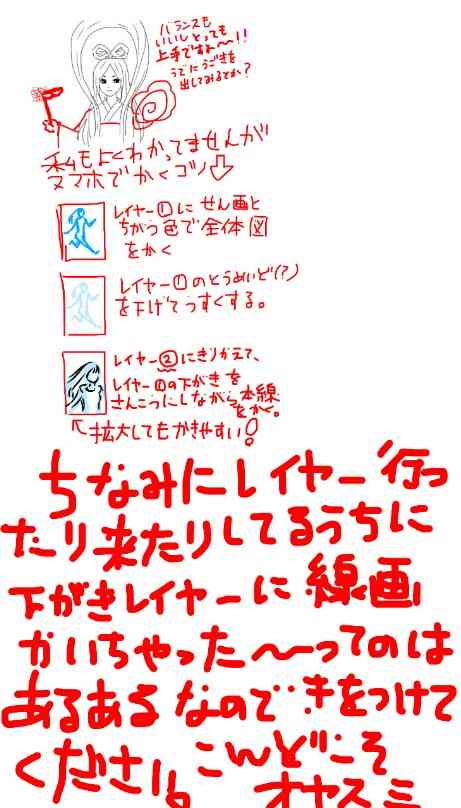 バランスも
いいしとっても
上手ですねー!!
うでにうごきを
出してみるとか?
私もよくわかってませんが
スマホでかくコツ⇩
レイヤー①にせん画と
ちがう色で全体図
をかく
レイヤー①のとうめいど(?)
を下げてうすくする。
レイヤー②にきりかえて、
レイヤー①の下がきを
さんこうにしながら本線
をかく。
↖拡大してもかきやすい!
ちなみにレイヤー行っ
たり来たりしてるうちに
下がきレイヤーに線画
かいちゃった〜ってのは
あるあるなのできをつけて
ください。こんどこそ
オヤスミ